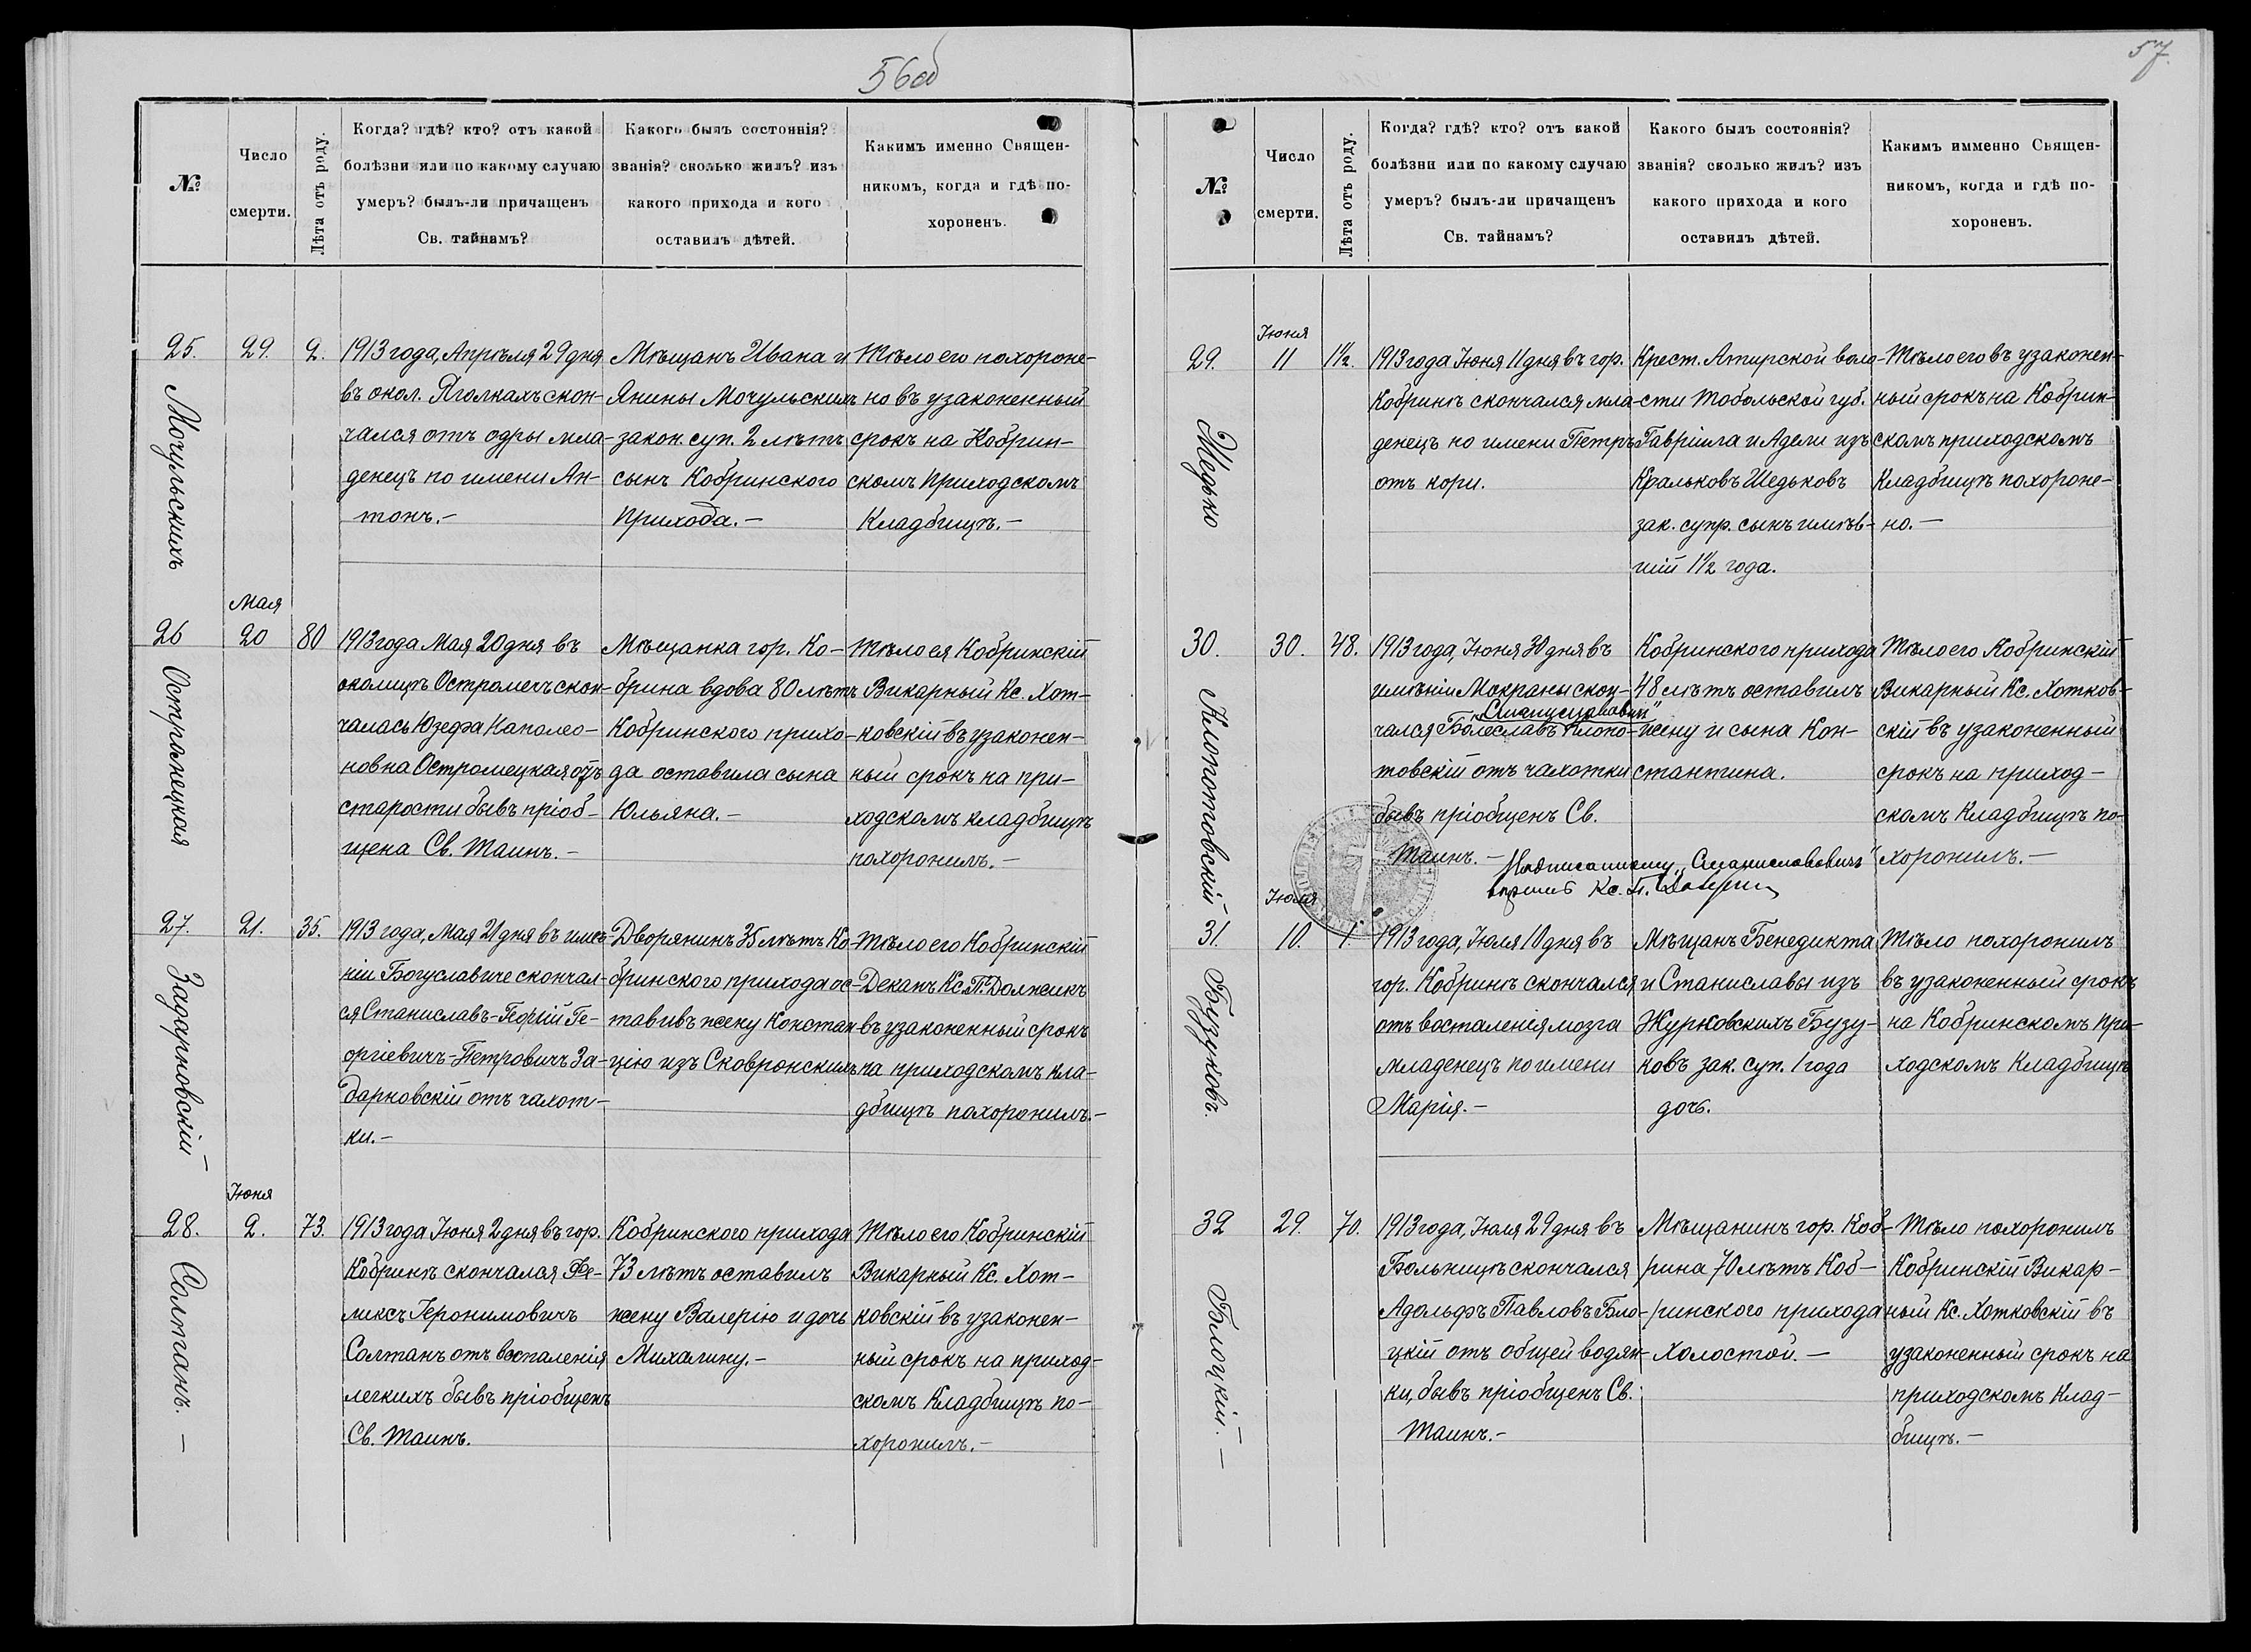 56об
№
Число
смерти.
Лѣта отъ роду.
Когда? гдѣ? кто? отъ какой
болѣзни или по какому случаю
умеръ? былъ-ли причащенъ
Св. тайнамъ?
Какого былъ состоянія?
званія? сколько жилъ? изъ
какого прихода и кого
оставилъ дѣтей.
Какимъ именно Священ-
никомъ, когда и гдѣ по-
хороненъ.
25.
Мочульскихъ
29.
2.
1913 года, Апрѣля 29 дня
въ окол. Яголкахъ скон-
чался отъ одры мла-
денецъ по имени Ан-
тонъ.-
Мѣщанъ Ивана и
Янины Мочульскихъ
закон. суп. 2 лѣтъ
сынъ Кобринского
Прихода.-
Тѣло его похороне-
но въ узаконенный
срокъ на Кобрин-
скомъ Приходскомъ
Кладбищѣ.-
26
Остромецкая
Мая
20
80
1913 года Мая 20 дня въ
околицѣ Остромечъ скон-
чалась Юзефа Наполео-
новна Остромецкая отъ
старости бывъ пріоб-
щена Св. Таинъ.-
Мѣщанка гор. Ко-
брина вдова 80 лѣтъ
Кобринского прихо-
да оставила сына
Юльяна.-
Тѣло ея Кобринскій
Викарный Кс. Хот-
ковскій въ узаконен-
ный срокъ на при-
ходскомъ кладбищѣ
похоронилъ.-
27.
Задарновскій
21.
35.
1913 года, Мая 21 дня въ имѣ-
ніи Богуславиче скончал-
ся Станиславъ-Георгій Ге-
оргіевичъ-Петровичъ За-
дарновскій отъ чахот-
ки.-
Дворянинъ 35 лѣтъ Ко-
бринского прихода ос-
тавивъ жену Констан
цію изъ Сковронскихъ
Тѣло его Кобринскій
Деканъ Кс. П. Должикъ
въ узаконенный срокъ
на приходскомъ кла-
дбищѣ похоронилъ.-
28.
Солтанъ.-
Іюня
2.
73.
1913 года Іюня 2 дня въ гор.
Кобринѣ скончался Фе-
ликсъ Іеронимовичъ
Солтанъ отъ воспаленія
легкихъ бывъ пріобщенъ
Св. Таинъ.
Кобринского прихода
73 лѣтъ оставилъ
жену Валерію и дочь
Михалину.-
Тѣло его Кобринскій
Викарный Кс. Хот-
ковскій въ узаконен-
ный срокъ на приход-
скомъ Кладбищѣ по-
хоронилъ.-
57.
№
Число
смерти.
Лѣта отъ роду.
Когда? гдѣ? кто? отъ какой
болѣзни или по какому случаю
умеръ? былъ-ли причащенъ
Св. тайнамъ?
Какого былъ состоянія?
званія? сколько жилъ? изъ
какого прихода и кого
оставилъ дѣтей.
Какимъ имменно Священ-
никомъ, когда и гдѣ по-
хороненъ.
29.
Шедько
Іюня
11
1½.
1913 года Іюня 11 дня въ гор.
Кобринѣ скончался мла-
денецъ по имени Петръ
отъ кори.
Крест. Атирской воло-
сти Тобольской губ.
Гавріила и Адели изъ
Кральковъ Шедьковъ
зак. супр. сынъ имѣв-
шій 1½ года.
Тѣло его въ узаконен-
ный срокъ на Кобрин-
скомъ приходскомъ
Кладбищѣ похороне-
но.-
30.
Клопотовскій
30.
48.
1913 года, Іюня 30 дня въ
имѣніи Мокраны скон-
„Станиславовичъ"
чался Болеславъ Клопо-
товскій отъ чахотки
бывъ пріобщенъ Св.
Таинъ.-
Кобринского прихода
48 лѣтъ оставилъ
жену и сына Кон-
стантина.
Тѣло его Кобринскій
Викарный Кс. Хотков-
скій въ узаконенный
срокъ на приход-
скомъ Кладбищѣ по-
хоронилъ.-
Надписанному „Станиславовичъ"
Кс. П.
31.
Бузуковъ.
Іюля
10.
1.
1913 года, Іюля 10 дня въ
гор. Кобринѣ скончался
отъ воспаленія мозга
младенецъ по имени
Марія.-
Мѣщанъ Бенедикта
и Станиславы изъ
Журковскихъ Бузу-
ковъ зак. суп. 1 года
дочь.
Тѣло похоронилъ
въ узаконенный срокъ
на Кобринскомъ При-
ходскомъ Кладбищѣ
32
Блоцкій.-
29.
70.
1913 года, Іюля 29 дня въ
Больницѣ скончался
Адольфъ Павловъ Бло-
цкій отъ общей водян-
ки, бывъ пріобщенъ Св.
Таинъ.-
Мѣщанинъ гор. Коб-
рина 70 лѣтъ Коб-
ринского прихода
Холостой.-
Тѣло похоронилъ
Кобринскій Викар-
ный Кс. Хотковскій въ
узаконенный срокъ на
приходскомъ Клад-
бищѣ.-